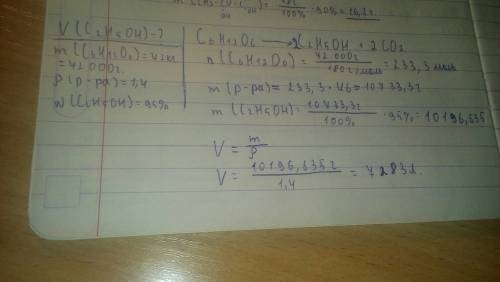 V(C₂H₅OH)-?
m(C₆H₁₂O₆)=42кг
=42000г.
ρ(р-ра)=1,4
w(C₂H₅OH)=95%
100% · 90% =
C₆H₁₂O₆ → 2C₂H₅OH + 2CO₂
n(C₆H₁₂O₆) = 42000г / 180г/моль = 233,3 моль
m(р-ра)= 233,3 · 46 = 10733,3г
m(C₂H₅OH)= 10733,3г / 100% · 95% = 10196,635
V = m / ρ
V = 10196,635г / 1,4 = 7283л.